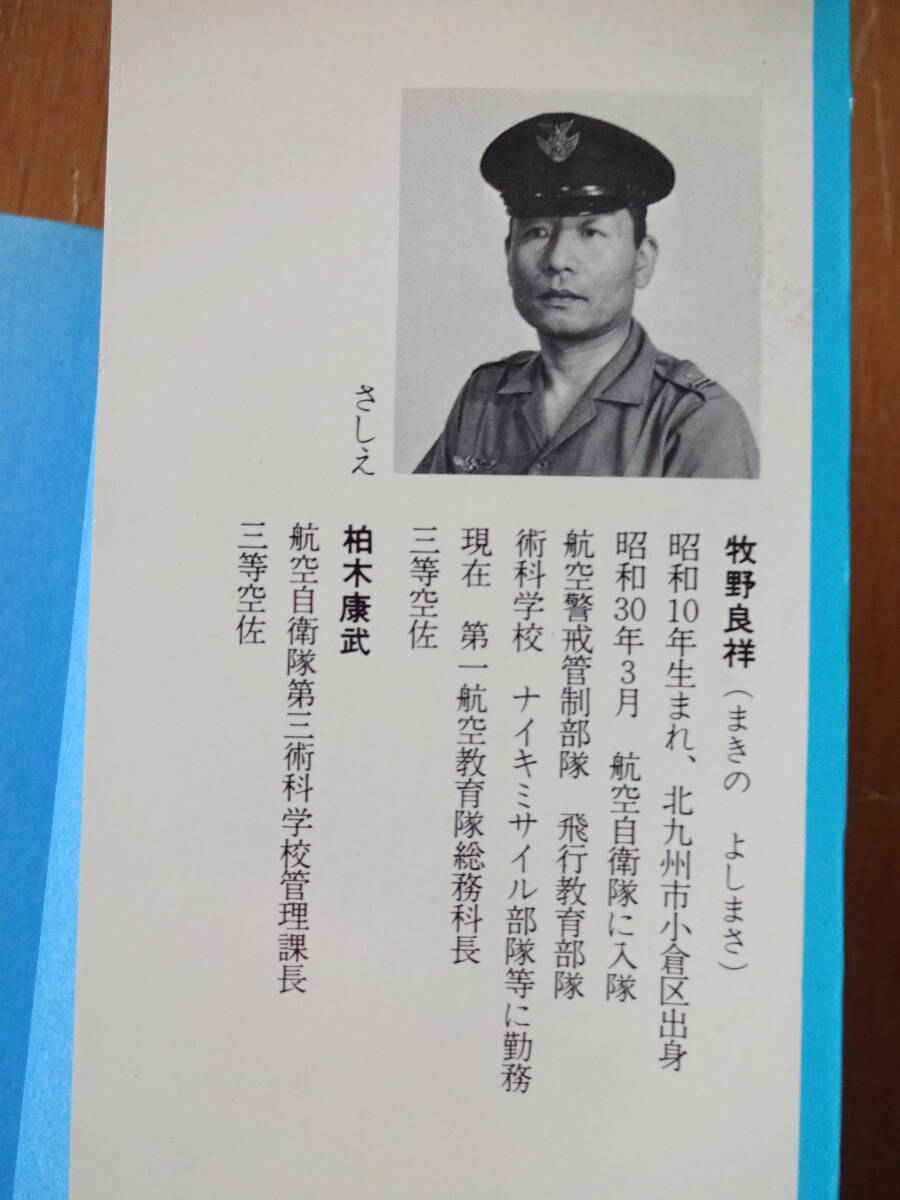 牧野良祥（まきの　よしまさ）
昭和10年生まれ、北九州市小倉区出身
昭和30年3月　航空自衛隊に入隊
航空警戒管制部隊　飛行教育部隊
術科学校　ナイキミサイル部隊等に勤務
現在　第一航空教育隊総務科長
三等空佐
さしえ
柏木康武
航空自衛隊第三術科学校管理課長
三等空佐